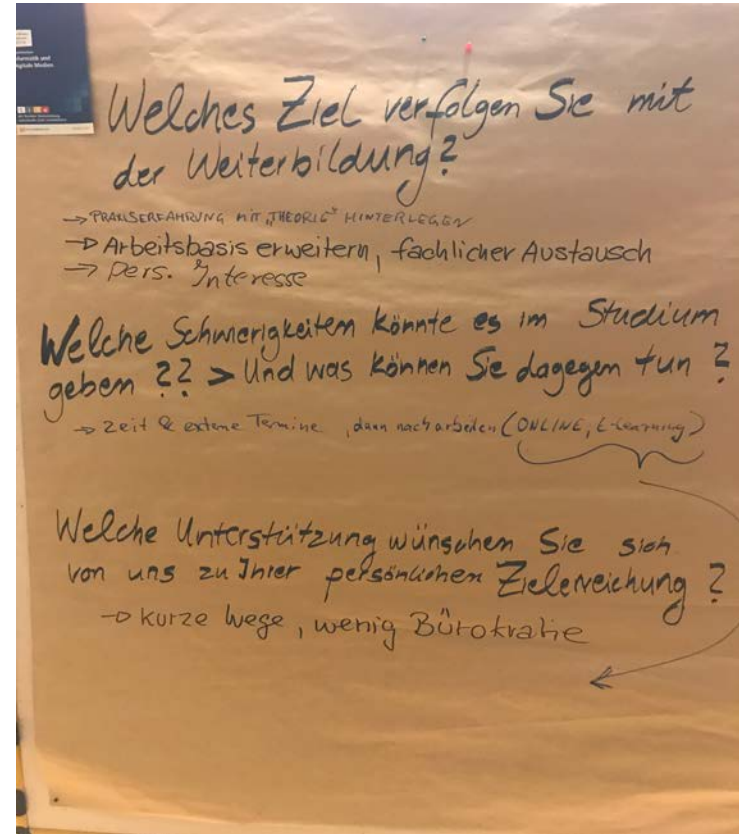 Informatik und
Digitale Medien
Welches Ziel verfolgen Sie mit
der Weiterbildung?
→ PRAXISERFAHRUNG MIT „THEORIE" HINTERLEGEN
→ Arbeitsbasis erweitern, fachlicher Austausch
→ Pers. Interesse
Welche Schwierigkeiten könnte es im Studium
geben ?? > Und was können Sie dagegen tun ?
→ Zeit & externe Termine, dann nacharbeiten (ONLINE, E-Learning)
Welche Unterstützung wünschen Sie sich
von uns zu Ihrer persönlichen Zielerreichung ?
→ kurze Wege, wenig Bürokratie